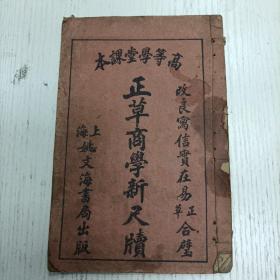 高等學堂課本
改良寫信實在易
正草合璧
正草商學新尺牘
上海姚文海書局出版